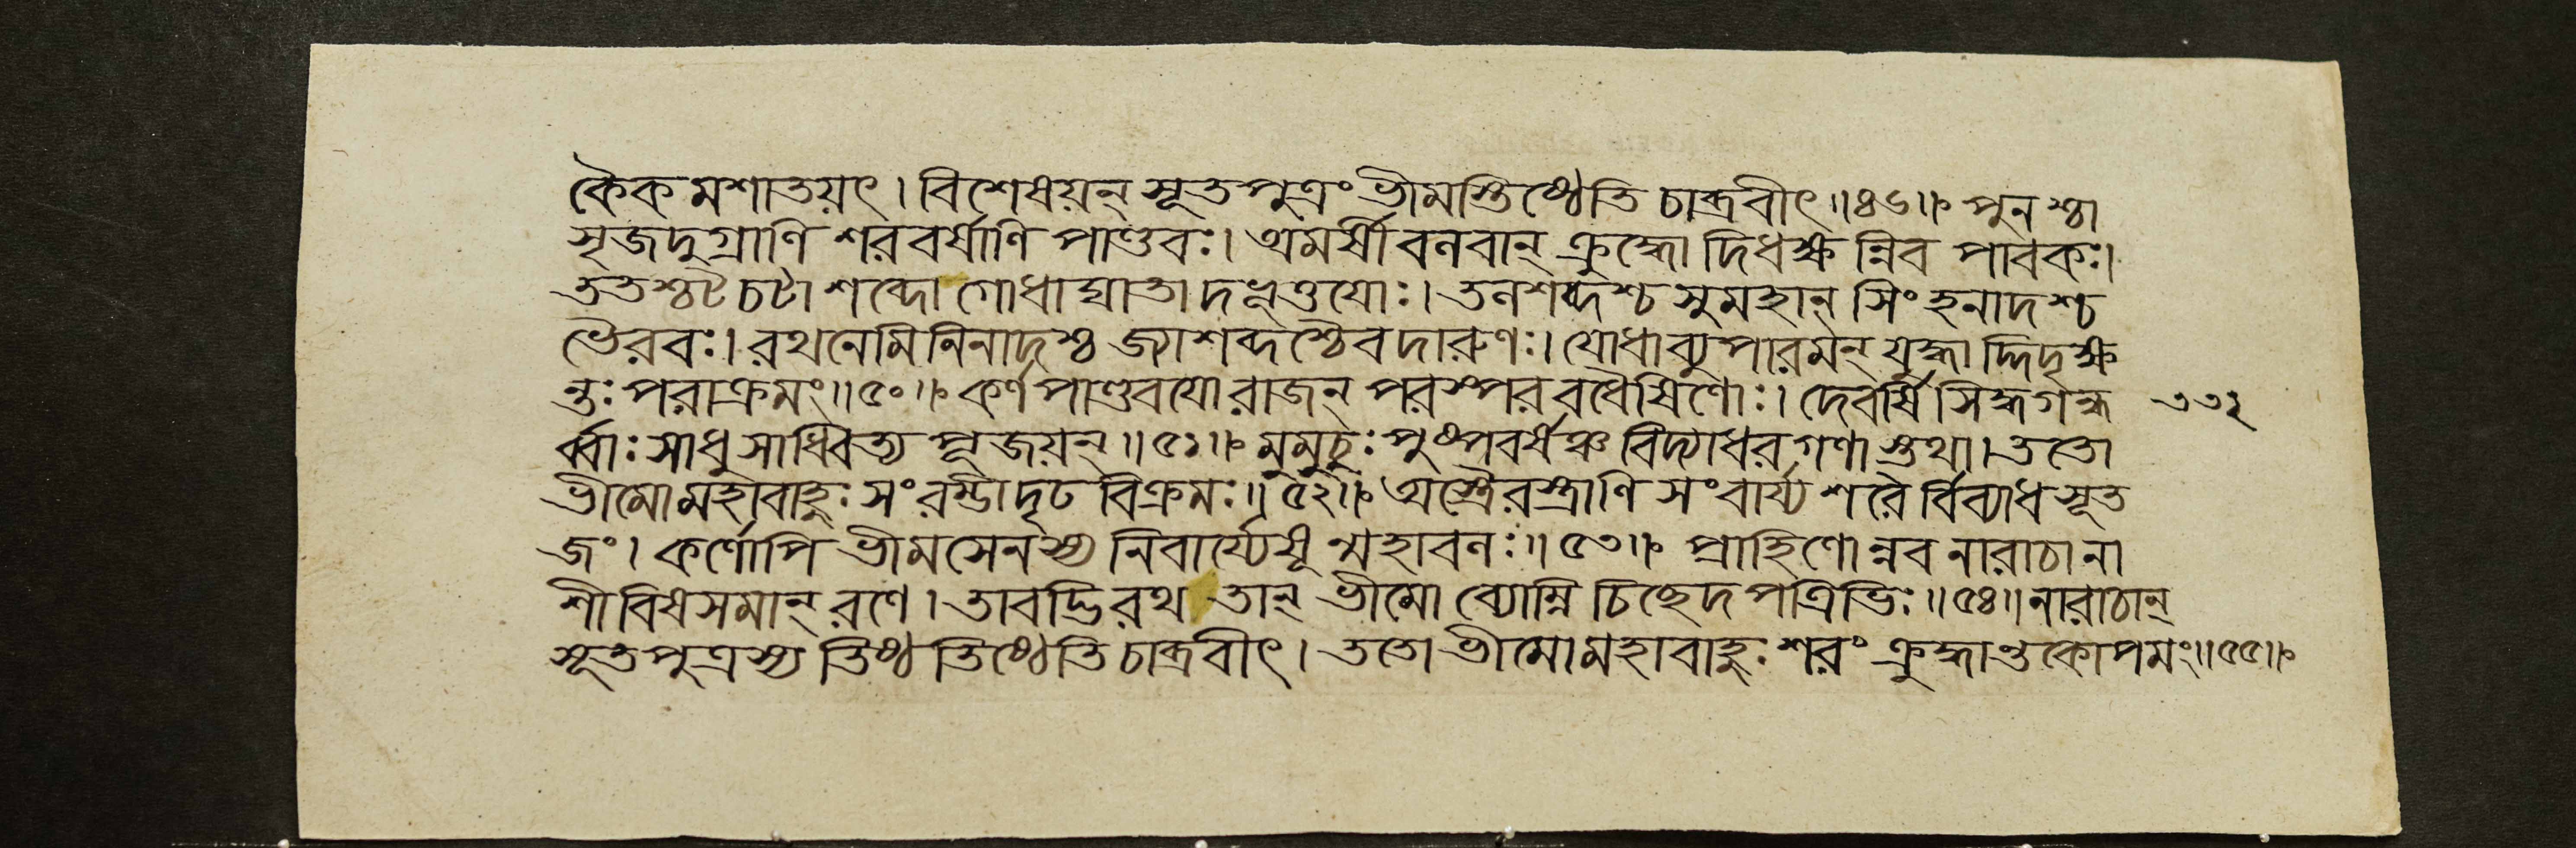 কৈকমশাতয়ৎ। বিশেষয়ন্ সূতপুত্রং ভীমস্তিষ্ঠেতি চাব্রবীৎ॥৪৯॥ পুনশ্চা
সৃজদুগ্রাণি শরবর্ষাণি পাণ্ডবঃ। অমর্ষী বলবান্ ক্রুদ্ধো দিধক্ষন্নিব পাবকঃ।
ততশ্চটচটাশব্দো গোধাঘাতাদভূত্তয়োঃ। তলশব্দশ্চ সুমহান্ সিংহনাদশ্চ
ভৈরবঃ। রথনেমিনিনাদশ্চ জ্যাশব্দশ্চৈব দারুণঃ। যোধাব্যুপারমন্ যুদ্ধাদ্দিদৃক্ষ
ন্তঃ পরাক্রমং॥৫০॥ কর্ণপাণ্ডবয়োরাজন্ পরস্পরবধৈষিণোঃ। দেবর্ষিসিদ্ধগন্ধ
র্ব্বাঃ সাধুসাধ্বিত্যপূজয়ন্॥৫১॥ মুমুচুঃ পুষ্পবর্ষঞ্চ বিদ্যাধরগণাস্তথা। ততো
ভীমো মহাবাহুঃ সংরম্ভী দৃঢবিক্রমঃ॥৫২॥ অস্ত্রৈরস্ত্রাণি সংবার্য্য শরৈর্বিব্যাধ সূত
জং। কর্ণোপি ভীমসেনস্য নিবার্য্যেষূন্মহাবলঃ॥৫৩॥ প্রাহিণোন্নব নারাচানা
শীবিষসমান্ রণে। তাবদ্ভিরথ তান্ ভীমো ব্যোম্নি চিচ্ছেদ পত্রিভিঃ॥৫৪॥ নারাচান্
সূতপুত্রস্য তিষ্ঠ তিষ্ঠেতি চাব্রবীৎ। ততো ভীমো মহাবাহুঃ শরং ক্রুদ্ধান্তকোপমং॥৫৫॥
৩৩২